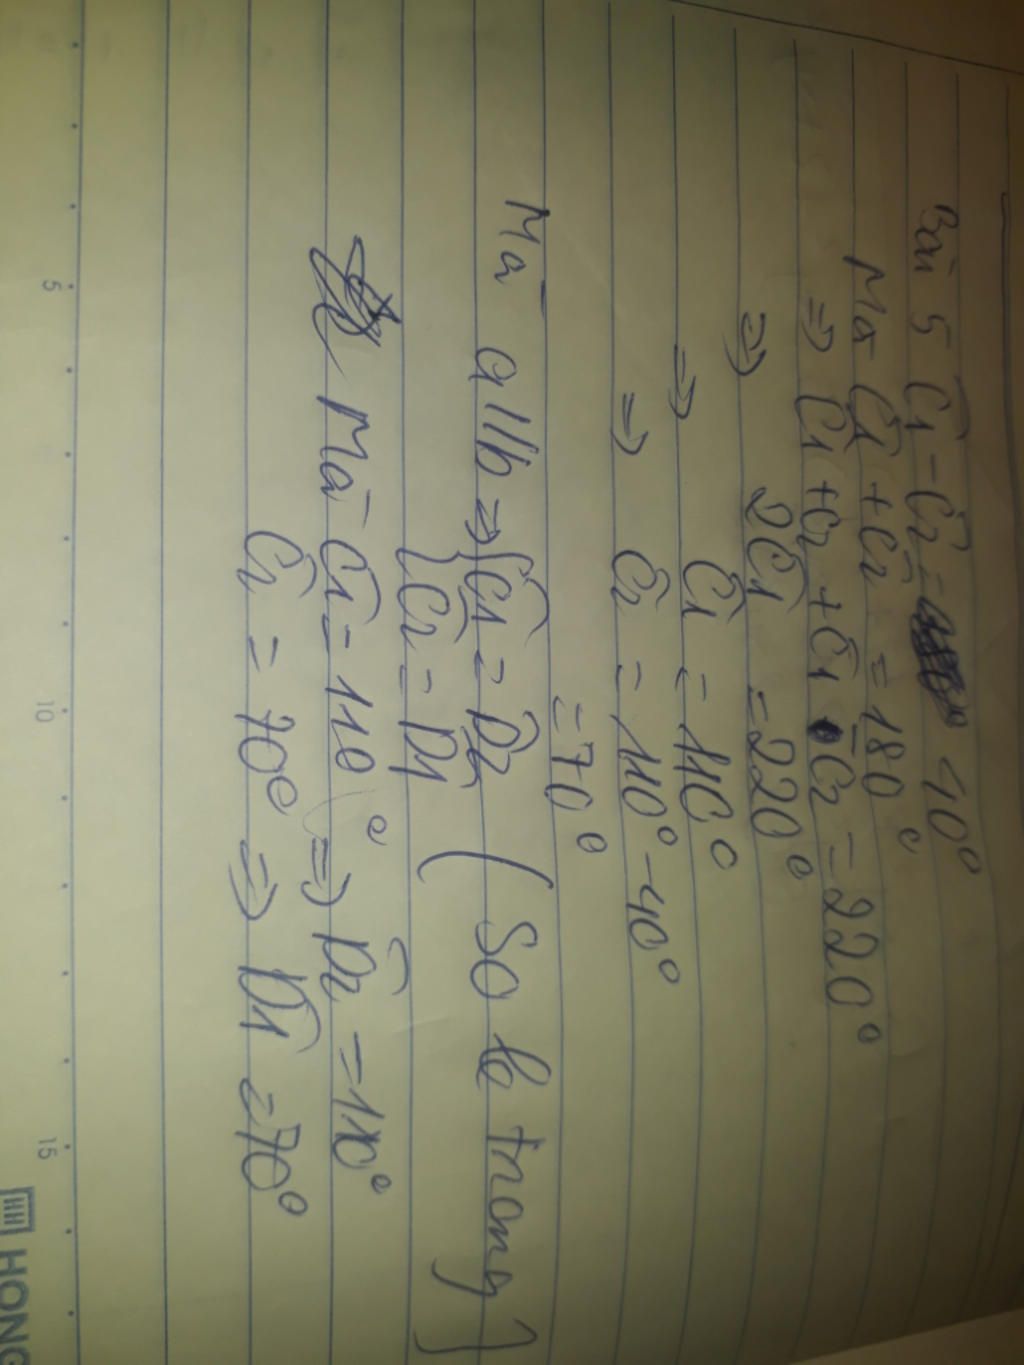 Bài 5 Ĉ1 - Ĉ2 = 40°
Mà Ĉ1 + Ĉ2 = 180°
=> Ĉ1 + C2 + Ĉ1 - C2 = 220°
=> 2Ĉ1 = 220°
=> Ĉ1 = 110°
=> Ĉ2 = 110° - 40°
= 70°
Mà a//b => { Ĉ1 = D̂2 ( So le trong )
{ Ĉ2 = D̂1
Mà Ĉ1 = 110° => D̂2 = 110°
Ĉ2 = 70° => D̂1 = 70°
5 10 15
HONG